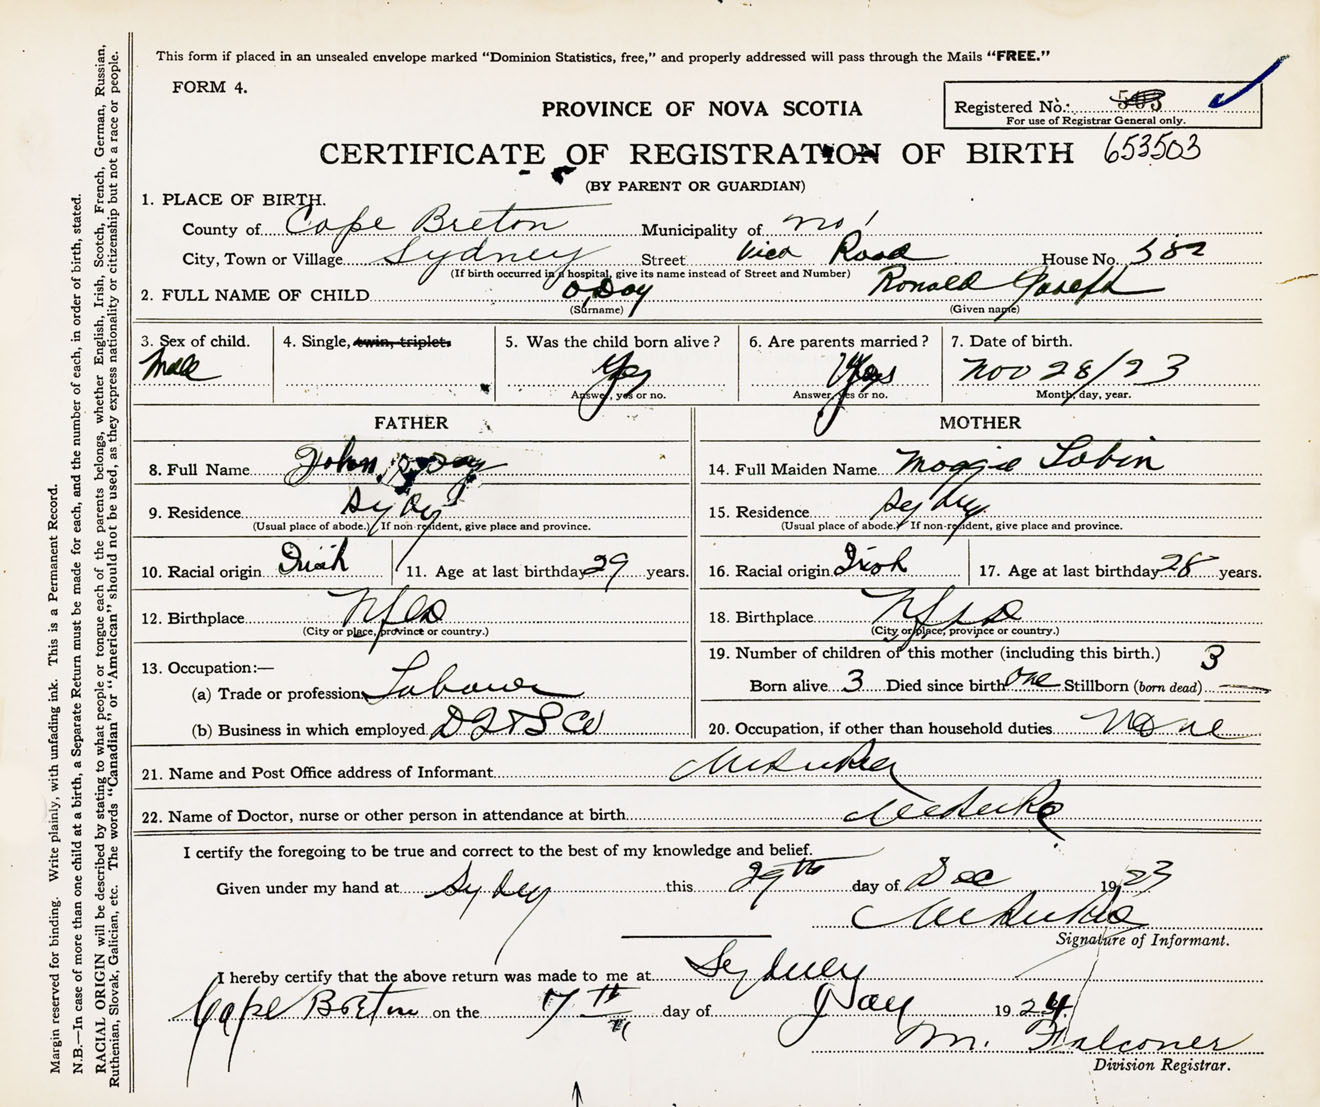 This form if placed in an unsealed envelope marked “Dominion Statistics, free,” and properly addressed will pass through the Mails “FREE.”
FORM 4.
Registered No.:
For use of Registrar General only.
PROVINCE OF NOVA SCOTIA
CERTIFICATE OF REGISTRATION OF BIRTH 653503
(BY PARENT OR GUARDIAN)
1. PLACE OF BIRTH.
County of Cape Breton Municipality of no 1
City, Town or Village Sydney Street Vica Road House No. 382
(If birth occurred in a hospital, give its name instead of Street and Number)
2. FULL NAME OF CHILD O,Day Ronald Joseph
(Surname) (Given name)
3. Sex of child. Male
4. Single, twin, triplet.
5. Was the child born alive? Yes
Answer, yes or no.
6. Are parents married? Yes
Answer, yes or no.
7. Date of birth. Nov 28/23
Month, day, year.
FATHER
8. Full Name John O,Day
9. Residence Sydney
(Usual place of abode.) If non-resident, give place and province.
10. Racial origin Irish 11. Age at last birthday 29 years.
12. Birthplace Nfld
(City or place, province or country.)
13. Occupation:—
(a) Trade or profession Labourer
(b) Business in which employed D I & S Co
MOTHER
14. Full Maiden Name Maggie Tobin
15. Residence Sydney
(Usual place of abode.) If non-resident, give place and province.
16. Racial origin Irish 17. Age at last birthday 28 years.
18. Birthplace Nfld
(City or place, province or country.)
19. Number of children of this mother (including this birth.) 3
Born alive 3 Died since birth One Stillborn (born dead) —
20. Occupation, if other than household duties None
21. Name and Post Office address of Informant
22. Name of Doctor, nurse or other person in attendance at birth
I certify the foregoing to be true and correct to the best of my knowledge and belief.
Given under my hand at Sydney this 29th day of Dec 1923
Signature of Informant.
I hereby certify that the above return was made to me at Sydney
Cape Breton on the 7th day of Jany 1924
M. Falconer
Division Registrar.
Margin reserved for binding. Write plainly, with unfading ink. This is a Permanent Record.
N.B.—In case of more than one child at a birth, a Separate Return must be made for each, and the number of each, in order of birth, stated.
RACIAL ORIGIN will be described by stating to what people or tongue each of the parents belongs, whether English, Irish, Scotch, French, German, Russian,
Ruthenian, Slovak, Galician, etc. The words “Canadian” or “American” should not be used, as they express nationality or citizenship but not a race or people.